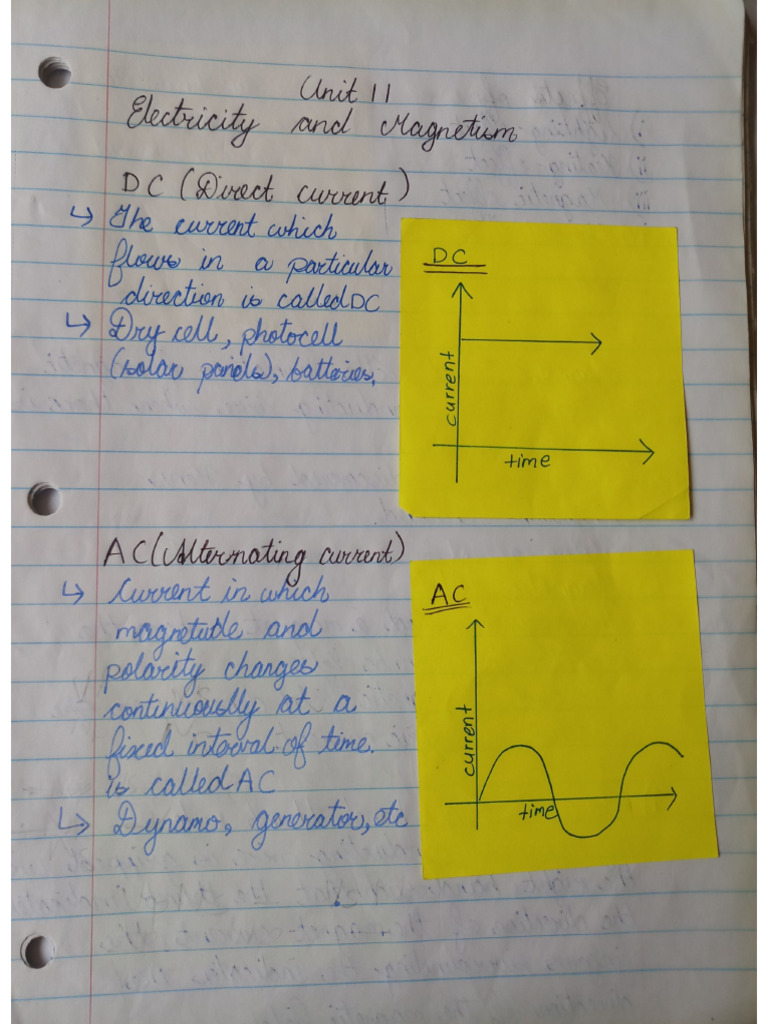 Unit 11
Electricity and Magnetism
DC (Direct current)
↳ The current which
flows in a particular
direction is called DC
↳ Dry cell, photocell
(solar panels), batteries.
DC
current
time
AC (Alternating current)
↳ Current in which
magnetude and
polarity changes
continuously at a
fixed interval of time.
is called AC
↳ Dynamo, generator, etc
AC
current
time